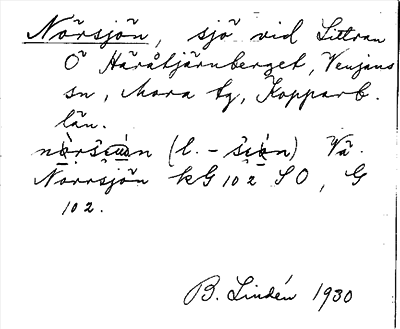 Nörsjön, sjö vid Littran
Ö Häråtjärnberget, Venjans
sn, Mora tg, Kopparb.
län.
(l. - Vå.
Norrsjön kG 102 SO, G
102.
B. Lindén 1930